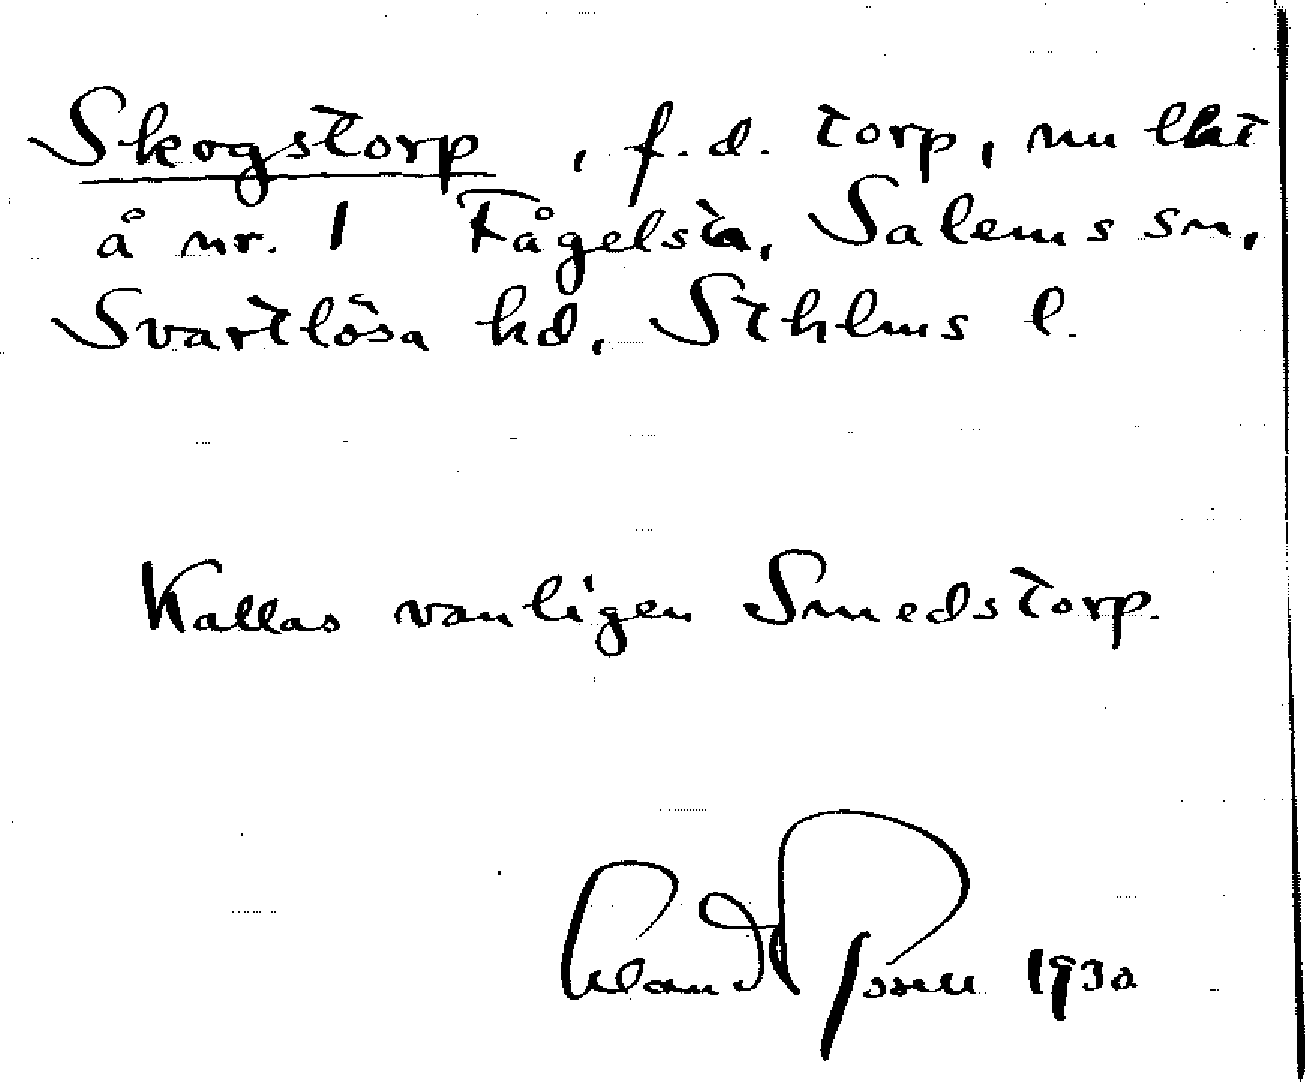 Skogstorp, f.d. torp, nu lht
å nr. 1 Fågelsta, Salems sn,
Svartlösa hd, Sthlms l.
Kallas vanligen Smedstorp.
1930